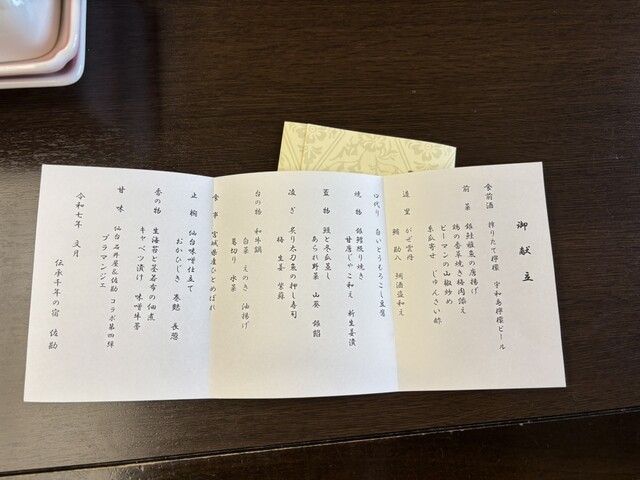 御献立
食前酒 搾りたて檸檬 宇和島檸檬ビール
前菜 銀鮭稚魚の唐揚げ
鶏の香草焼き梅肉添え
ピーマンの山椒炒め
糸瓜寄せ じゅんさい酢
造里 がぜ雲丹
鮪 助八 胡酒盗和え
口代り 白いとうもろこし豆腐
焼物 銀鱈照り焼き
甘唐じゃこ和え 新生姜漬
蓋物 鰻と冬瓜蒸し
あられ野菜 山葵 銀餡
凌ぎ 炙り太刀魚の押し寿司
梅 生姜 紫蘇
台の物 和牛鍋
白菜 えのき 油揚げ
葛切り 水菜
食事 宮城県産ひとめぼれ
止椀 仙台味噌仕立て
おかひじき 巻麩 長葱
香の物 生海苔と茎若布の佃煮
キャベツ漬け 味噌牛蒡
甘味 仙台石井屋&佐勘 コラボ第四弾
ブラマンジェ
令和七年 文月
伝承千年の宿 佐勘